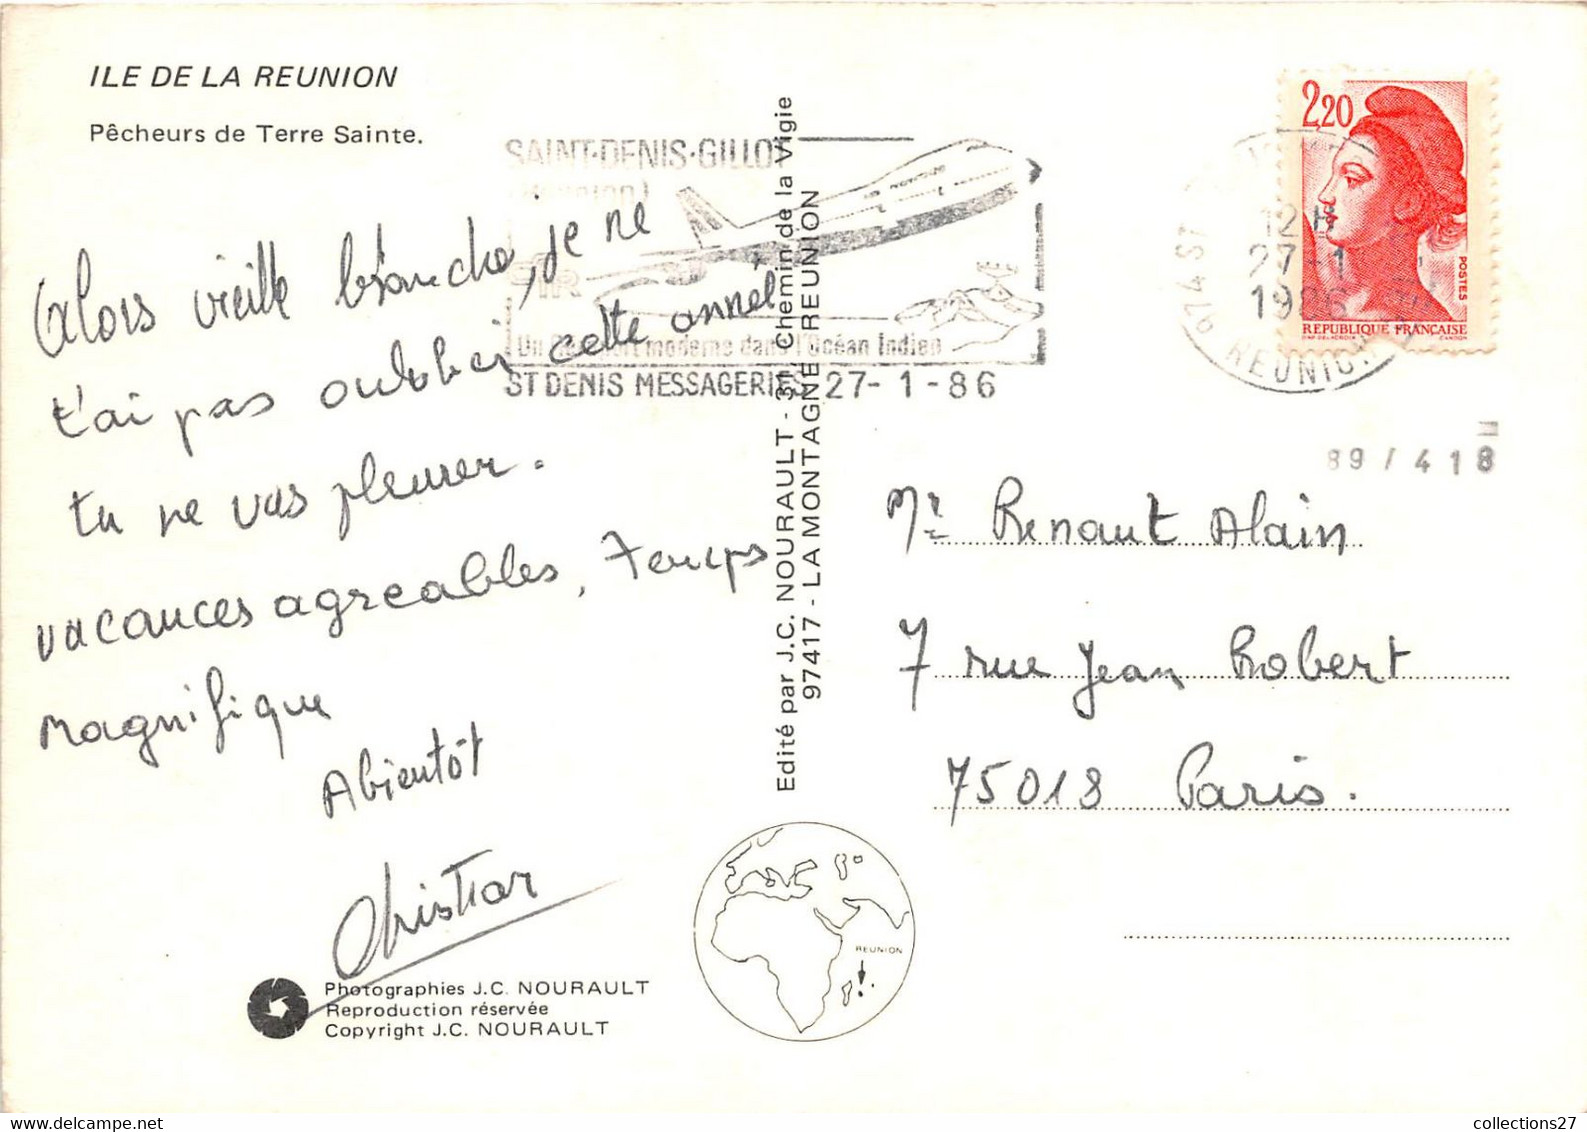 ILE DE LA REUNION
Pêcheurs de Terre Sainte.
SAINT-DENIS-GILLOT
(Réunion)
moderne dans l'Océan Indien
ST DENIS MESSAGERIES 27-1-86
2,20
POSTES
REPUBLIQUE FRANÇAISE
974 ST
12 H
27-1
1986
REUNION
89 / 418
Alors vieille branche, je ne
t'ai pas oublié cette année
tu ne vas pleurer.
vacances agréables, Temps
magnifique
Abientôt
Christian
Edité par J.C. NOURAULT - 31, Chemin de la Vigie
97417 - LA MONTAGNE - REUNION
Mr Renaut Alain
7 rue Jean Robert
75018 Paris.
REUNION
Photographies J.C. NOURAULT
Reproduction réservée
Copyright J.C. NOURAULT
collections27